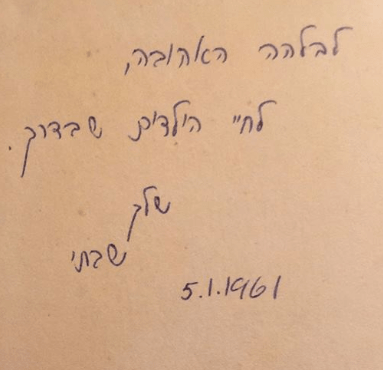 לבלהה האהובה,
לחיי הילדים שבדרך.
שלך
שבתי
5.1.1961